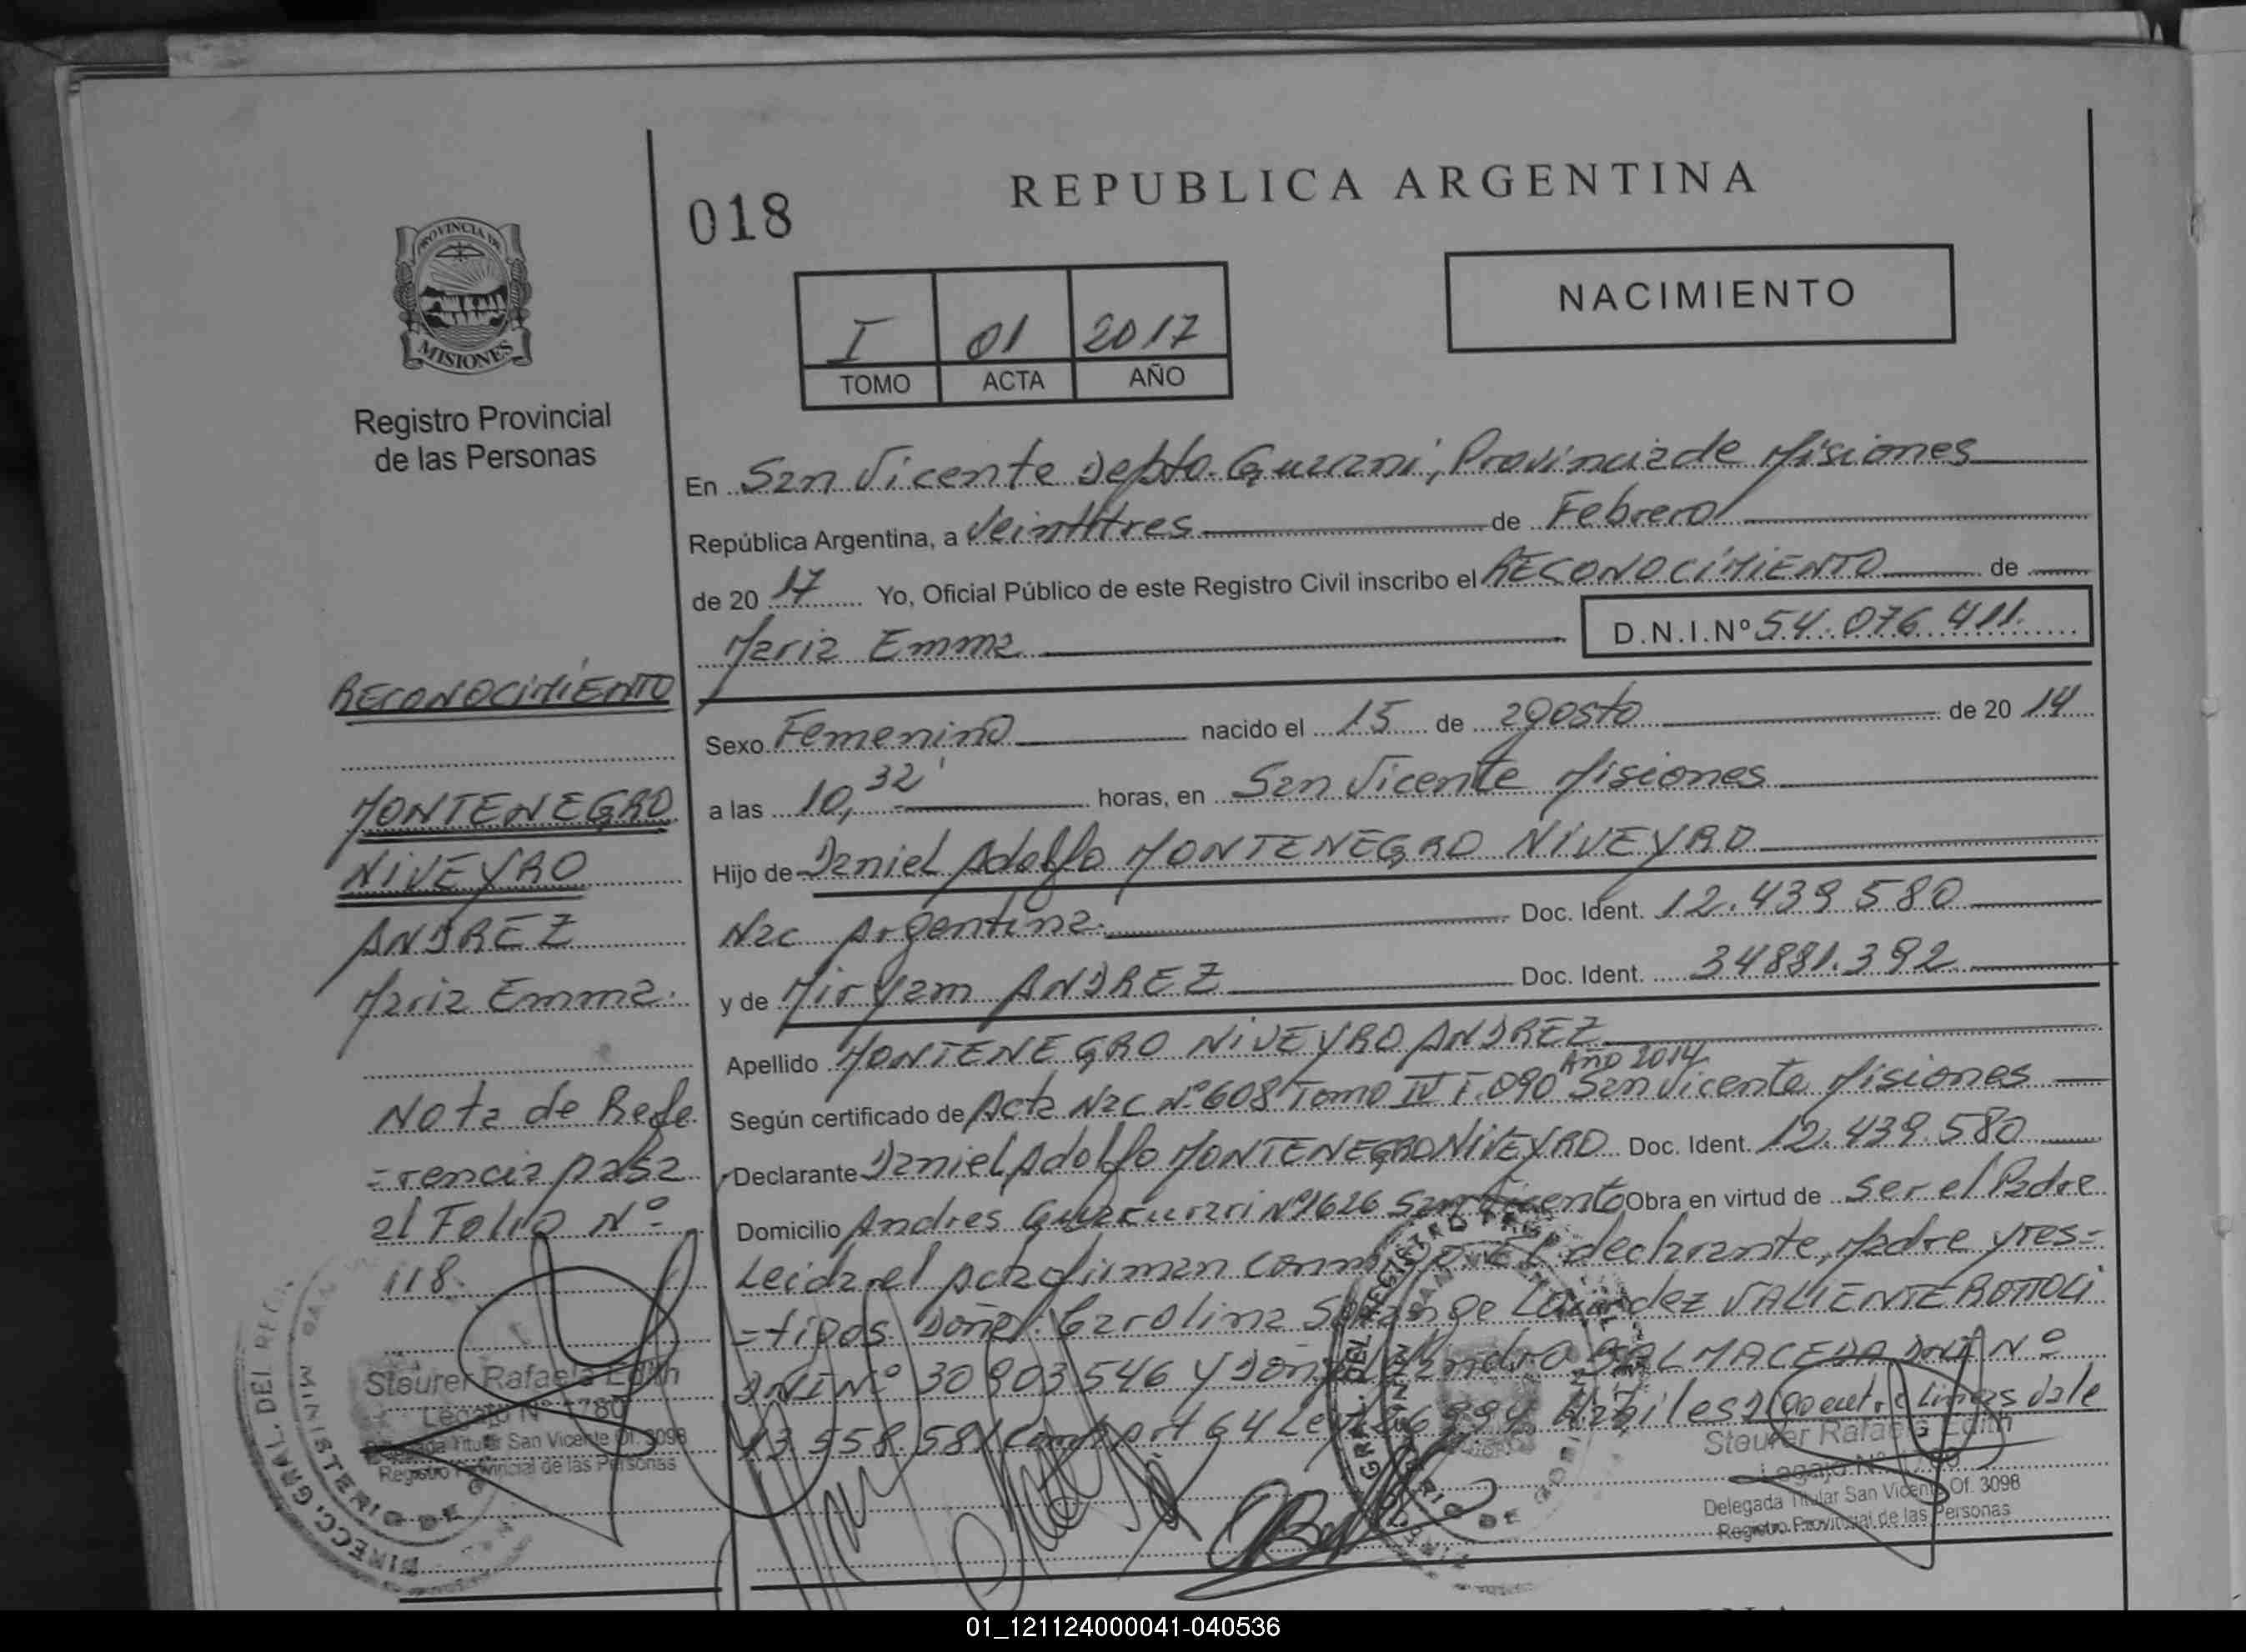 018
REPUBLICA ARGENTINA
PROVINCIA DE
MISIONES
Registro Provincial
de las Personas
NACIMIENTO
I 01 2017
TOMO ACTA AÑO
En San Vicente Depto. Guarani, Provincia de Misiones
República Argentina, a Veintitres de Febrero
de 20 17 Yo, Oficial Público de este Registro Civil inscribo el RECONOCIMIENTO de
Maria Emma D.N.I.Nº 54.076.411.
Sexo Femenino nacido el 15 de agosto de 20 14
a las 10,32' horas, en San Vicente Misiones
Hijo de Daniel Adolfo MONTENEGRO NIVEYRO
Nac Argentina Doc. Ident. 12.439.580
y de Miryam ANDREZ Doc. Ident. 34881.392
Apellido MONTENEGRO NIVEYRO ANDREZ
Año 2014
Según certificado de Acta Nac Nº 608 Tomo IV F.090 San Vicente Misiones
Declarante Daniel Adolfo MONTENEGRO NIVEYRO Doc. Ident. 12.439.580
Domicilio Andres Guacurari Nº1626 San Vicente Obra en virtud de ser el Padre
Leida el Acta firman El declarante, Madre y tes=
=tigos Doña: Carolina VALIENTE
DNI Nº 30 903 546 y BALMACEDA DNI Nº
13 558.581 Art 64 Ley 26994 entre lineas vale
RECONOCIMIENTO
MONTENEGRO
NIVEYRO
ANDREZ
Maria Emma.
Nota de Refe
=rencia pasa
al Folio Nº
118.
Steurer Rafaela Edith
Legajo Nº 1780
Delegada Titular San Vicente Of. 3098
Registro Provincial de las Personas
DIRECC. GRAL. DEL
MINISTERIO DE
GRAL. DEL REGISTRO
DE
Steurer Rafaela Edith
Legajo Nº 1780
Delegada Titular San Vicente Of. 3098
Registro Provincial de las Personas
01_121124000041-040536